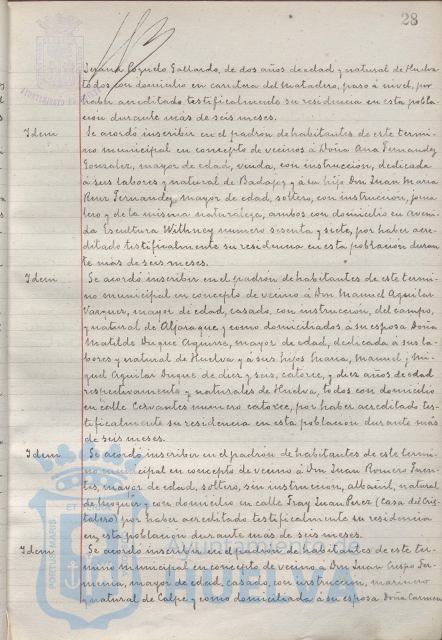 28
Gallardo, de dos años de edad y natural de Huelva
todos con domicilio en carretera del Matadero, paso á nivel, por
haber acreditado testificalmente su residencia en esta pobla-
cion durante más de seis meses.
Idem
Se acordó inscribir en el padrón de habitantes de este termi-
no municipal en concepto de vecinos á Doña Ana Fernandez
Gonzalez, mayor de edad, viuda, con instrucción, dedicada
á sus labores y natural de Badajoz y á su hijo Don Juan Maria
Ruiz Fernandez, mayor de edad, soltero, con instruccion, jorna-
lero y de la misma naturaleza, ambos con domicilio en Aveni-
da Escultora Withney numero sesenta y siete, por haber acre-
ditado testifcalmente su residencia en esta población duran-
te más de seis meses.
Idem
Se acordó inscribir en el padrón de habitantes de este termi-
no municipal en concepto de vecino á Don Manuel Aguilar
Vazquez, mayor de edad, casado, con instrucción, del campo,
y natural de Aljaraque y como domiciliados á su esposa Doña
Matilde Duque Aguirre, mayor de edad, dedicada á sus la-
bores y natural de Huelva y á sus hijos Maria, Manuel y Mi-
guel Aguilar Duque de diez y seis, catorce, y diez años de edad
respectivamente y naturales de Huelva, todos con domicilio
en calle Cervantes numero catorce, por haber acreditado tes-
tificalmente su residencia en esta poblacion durante más
de seis meses.
Idem
Se acordó inscribir en el padrón de habitantes de este termi-
no municipal en concepto de vecino á Don Juan Romero Fuen-
tes, mayor de edad, soltero, sin instruccion, albañil, natural
de Moguer y con domicilio en calle Fray Juan Perez (Casa del Cris-
talero) por haber acreditado testificalmente su residencia
en esta poblacion durante más de seis meses.
Idem
Se acordó inscribir en el padrón de habitantes de este ter-
mino municipal en concepto de vecino á Don Juan Crespo
mayor de edad, casado, con instruccion, marinero
y natural de Calpe y como domiciliada á su esposa Doña Carmen